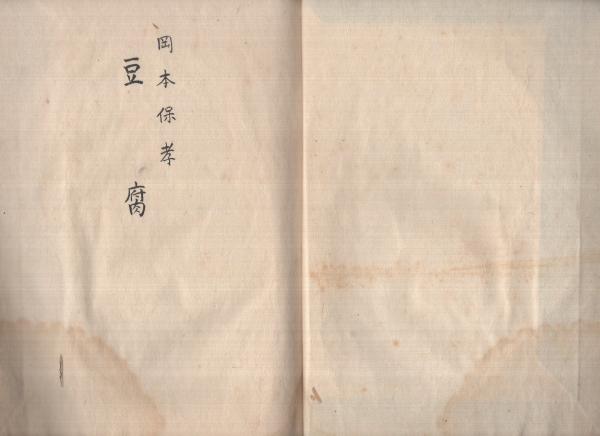 岡本保孝
豆腐